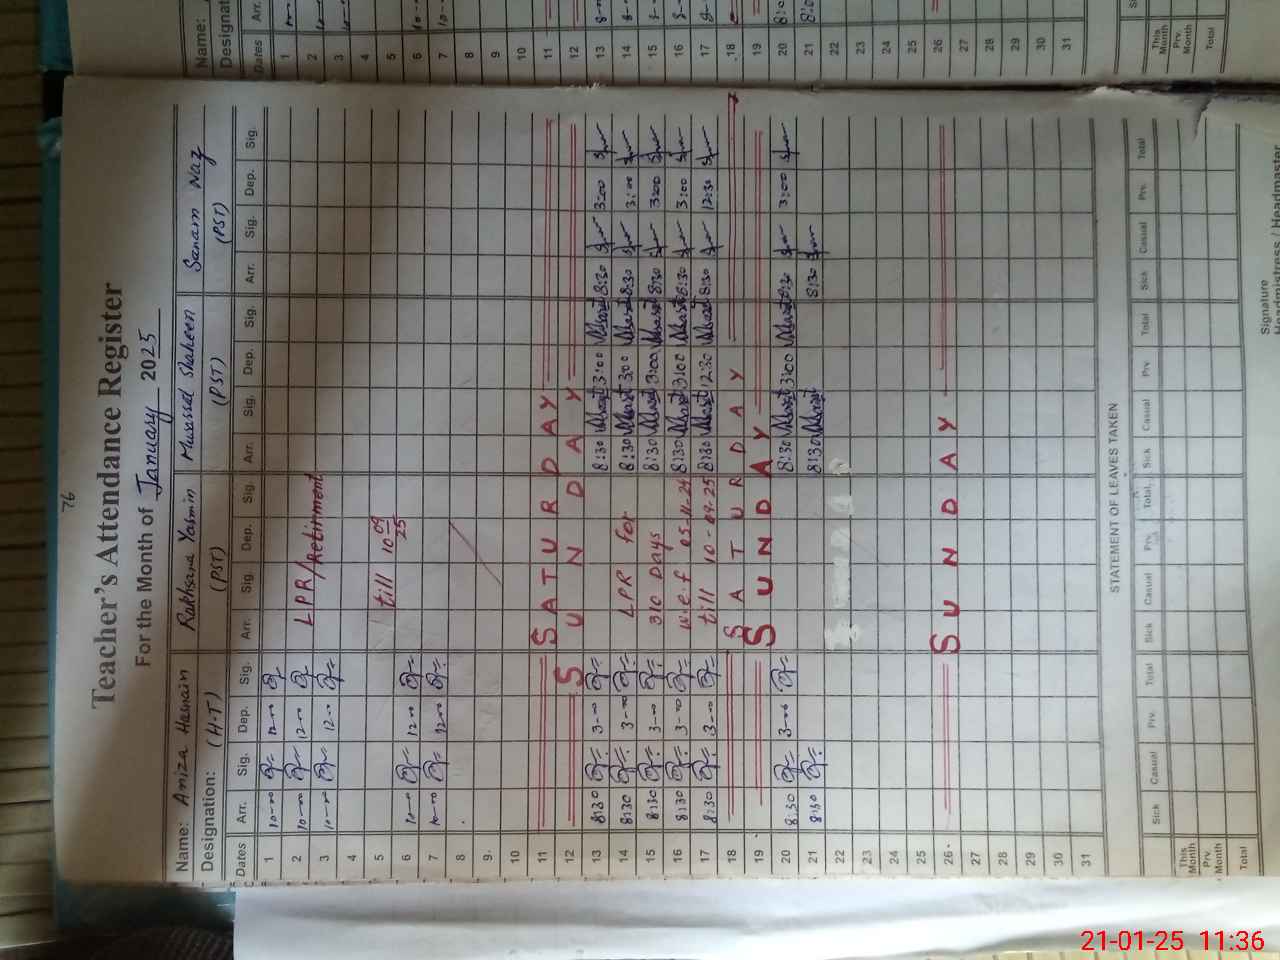 76
Teacher's Attendance Register
For the Month of January 2025
Name: Aniza Hasnain Rukhsana Yasmin Mussal Shaheen Sanam Naz
Designation: (H.T) (PST) (PST) (PST)
Dates Arr. Sig. Dep. Sig. Arr. Sig. Dep. Sig. Arr. Sig. Dep. Sig. Arr. Sig. Dep. Sig.
1 10-00 12-00
2 10-00 12-00 LPR/Retirment
3 10-00 12-00
4
5 till 10 09 25
6 10-00 12-00
7 10-00 12-00
8
9
10
11 SATURDAY
12 SUNDAY
13 8:30 3-00 8:30 3:00 8:30 3:00
14 8:30 3-00 LPR for 8:30 3:00 8:30 3:00
15 8:30 3-00 310 Days 8:30 3:00 8:30 3:00
16 8:30 3-00 w.e.f 05-11-24 8:30 3:00 8:30 3:00
17 8:30 3-00 till 10-09-25 8:30 12:30 8:30 12:30
18 SATURDAY
19 SUNDAY
20 8:30 3-00 8:30 3:00 8:30 3:00
21 8:30 8:30 8:30
22
23
24
25
26 SUNDAY
27
28
29
30
31
STATEMENT OF LEAVES TAKEN
Sick Casual Prv. Total Sick Casual Prv. Total Sick Casual Prv. Total Sick Casual Prv. Total
This Month
Prv. Month
Total
Signature
Headmistress / Headmaster
Name:
Dates
Arr.
1
2
3
4
5
6
7
8
9
10
11
12
13
14
15
16
17
18
19
20
21
22
23
24
25
26
27
28
29
30
31
This Month
Prv. Month
Total
21-01-25 11:36